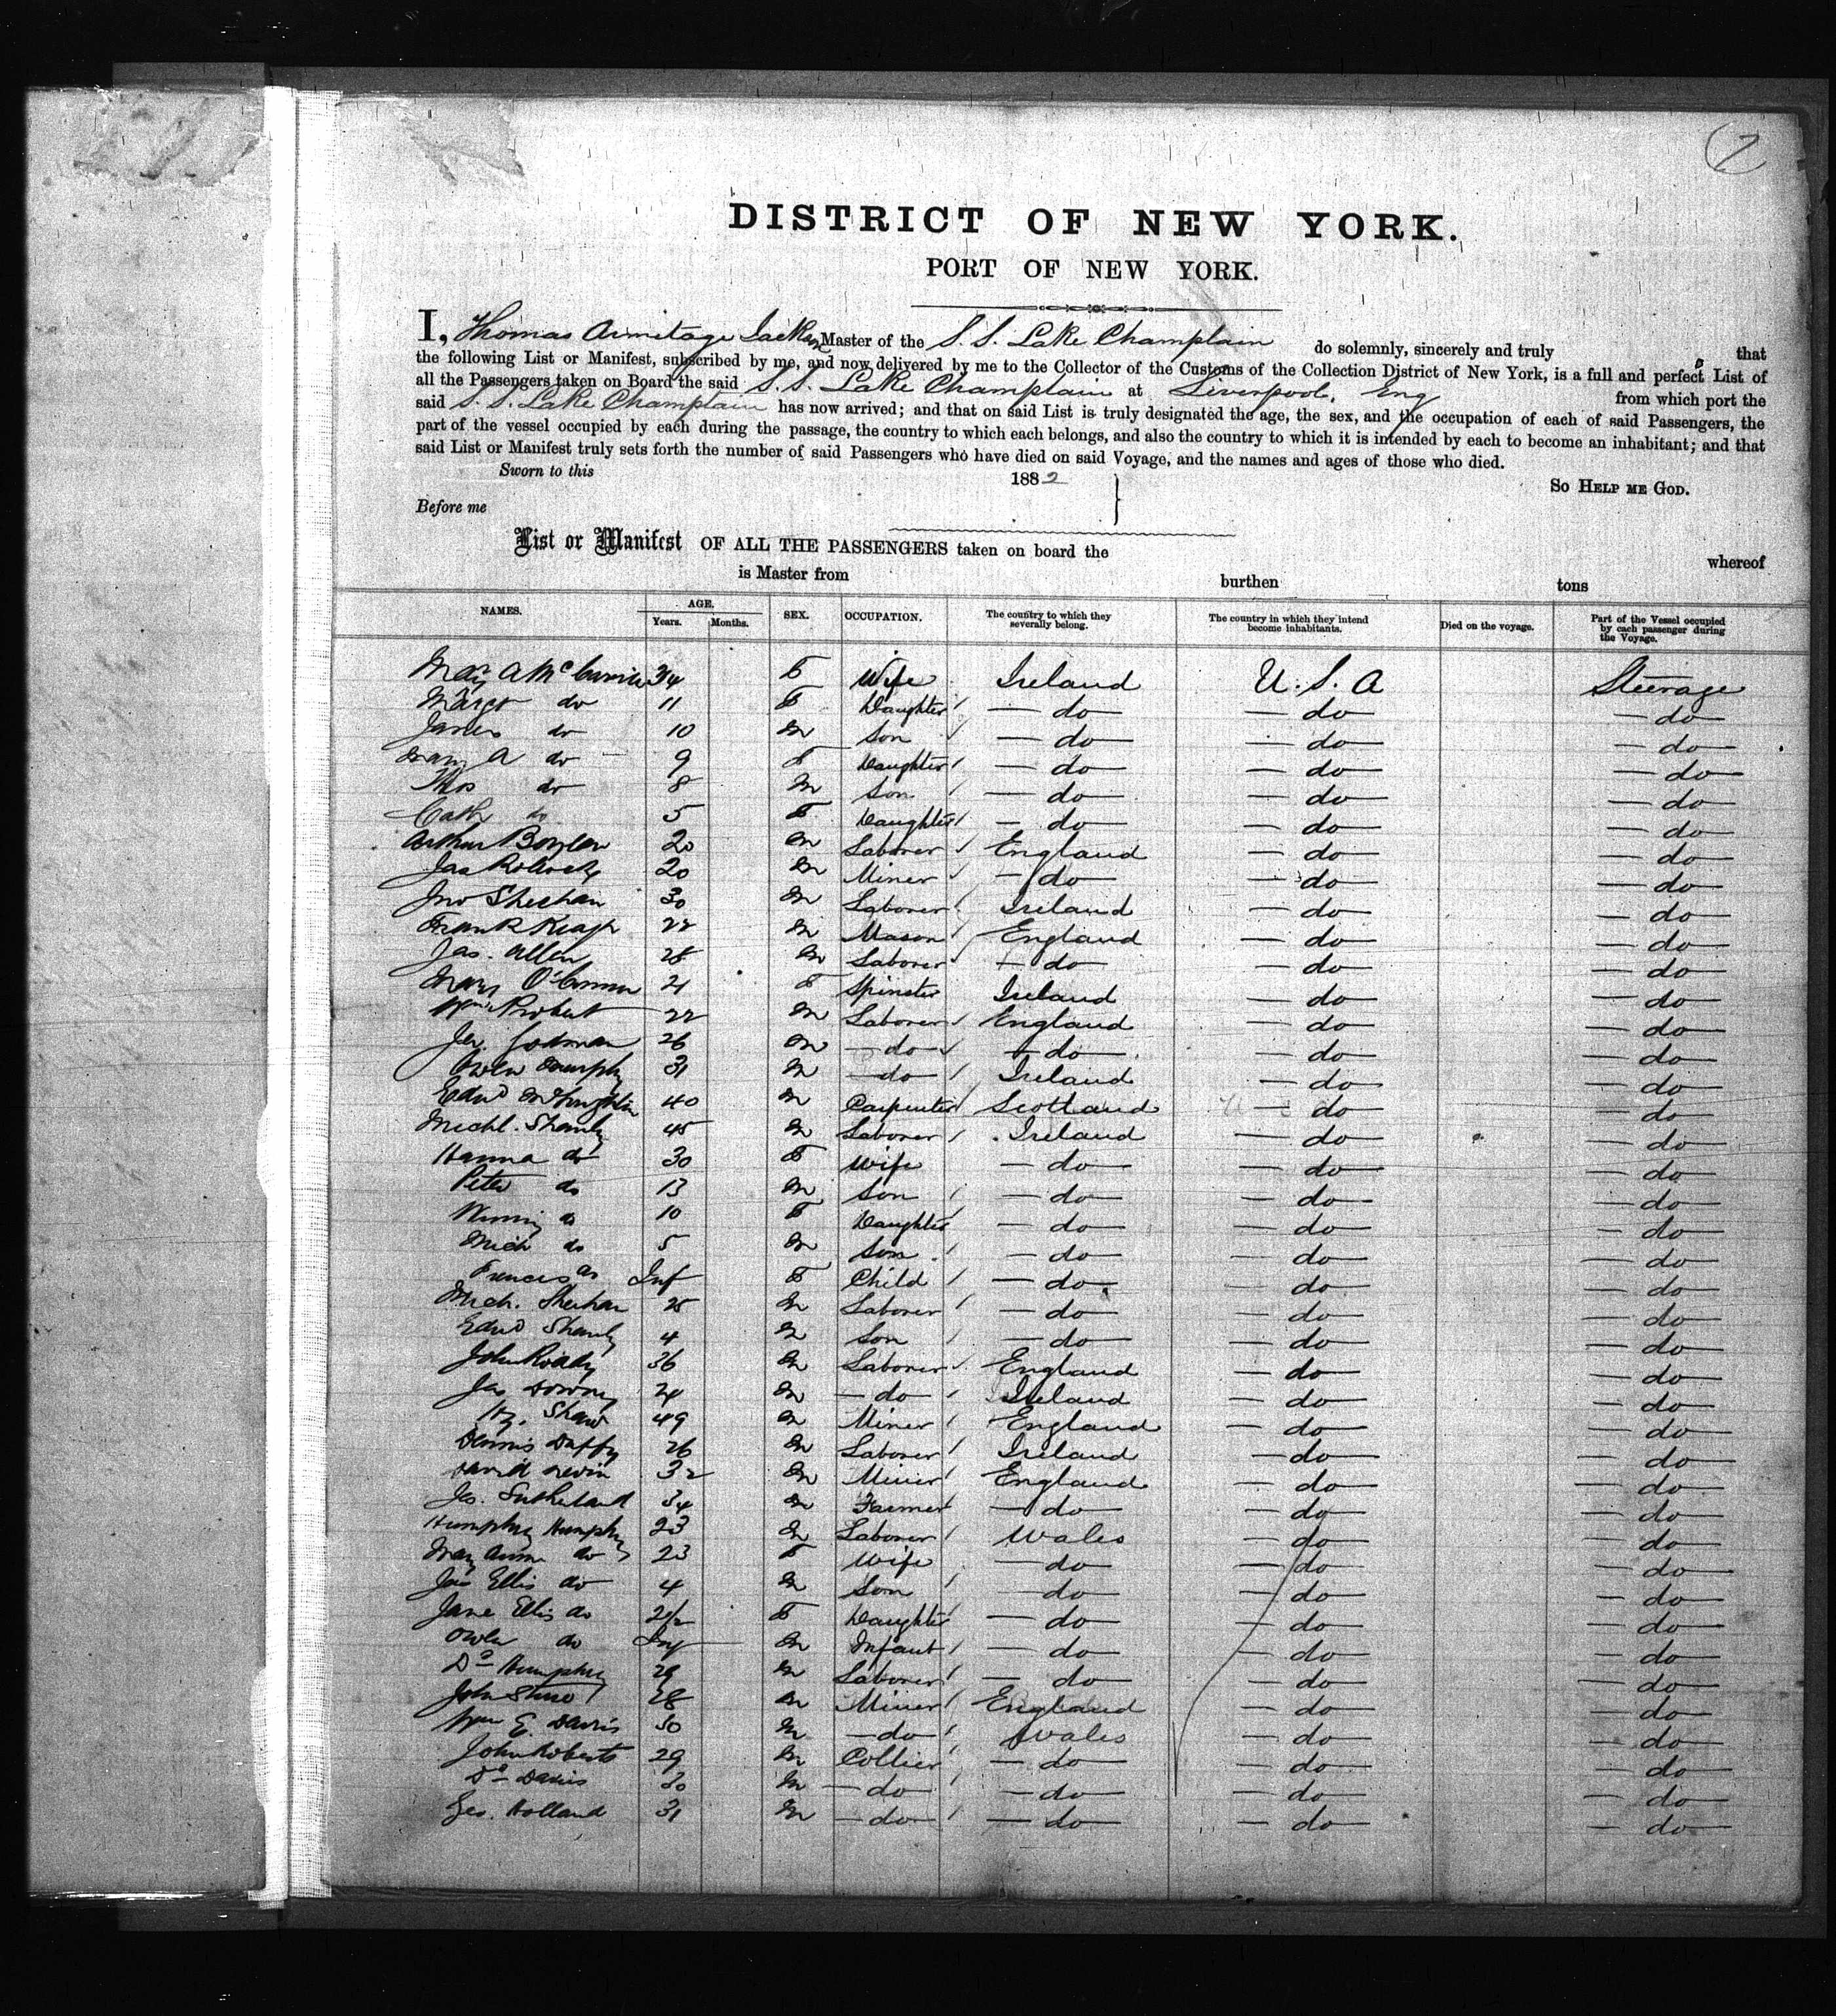 7
DISTRICT OF NEW YORK.
PORT OF NEW YORK.
I, Thomas Armitage Jackson Master of the S. S. Lake Champlain do solemnly, sincerely and truly that
the following List or Manifest, subscribed by me, and now delivered by me to the Collector of the Customs of the Collection District of New York, is a full and perfect List of
all the Passengers taken on Board the said S. S. Lake Champlain at Liverpool, Eng from which port the
said S. S. Lake Champlain has now arrived; and that on said List is truly designated the age, the sex, and the occupation of each of said Passengers, the
part of the vessel occupied by each during the passage, the country to which each belongs, and also the country to which it is intended by each to become an inhabitant; and that
said List or Manifest truly sets forth the number of said Passengers who have died on said Voyage, and the names and ages of those who died.
Sworn to this 1882 So HELP ME GOD.
Before me
List or Manifest OF ALL THE PASSENGERS taken on board the whereof
is Master from burthen tons
NAMES. AGE. Years. Months. SEX. OCCUPATION. The country to which they severally belong. The country in which they intend become inhabitants. Died on the voyage. Part of the Vessel occupied by each passenger during the Voyage.
Mary A 34 F Wife Ireland U. S. A Steerage
Margt do 11 F Daughter do do do
James do 10 M Son do do do
Mary A do 9 F Daughter do do do
Thos do 8 M Son do do do
Cath do 5 F Daughter do do do
Arthur Boylan 20 M Laborer England do do
Jas 20 M Miner do do do
Jno Sheehan 30 M Laborer Ireland do do
Frank 22 M Mason England do do
Jas. Allen 28 M Laborer do do do
Mary O'Connor 21 F Spinster Ireland do do
Wm Probert 22 M Laborer England do do
26 M do do do do
Owen Murphy 31 M do Ireland do do
Edwd 40 M Carpenter Scotland do do
Michl. Shanly 45 M Laborer Ireland do do
Hanna do 30 F Wife do do do
Peter do 13 M Son do do do
do 10 F Daughter do do do
Mich do 5 M Son do do do
Frances do Inf F Child do do do
Mich. Sheehan 25 M Laborer do do do
Edwd Shanly 4 M Son do do do
John 36 M Laborer England do do
Jas 24 M do Ireland do do
Hy. Shaw 49 M Miner England do do
Dennis Duffy 26 M Laborer Ireland do do
David 32 M Miner England do do
Js. Sutherland 34 M Farmer do do do
Humphrey Humphry 23 M Laborer Wales do do
Mary Anne do 23 F Wife do do do
Jas Ellis do 4 M Son do do do
Jane Ellis do 2½ F Daughter do do do
Owen do Inf M Infant do do do
Do Humphry 29 M Laborer do do do
John 28 M Miner England do do
Wm E. Davis 30 M do Wales do do
John Roberts 29 M Collier do do do
Do Davies 30 M do do do do
Geo. Holland 31 M do do do do